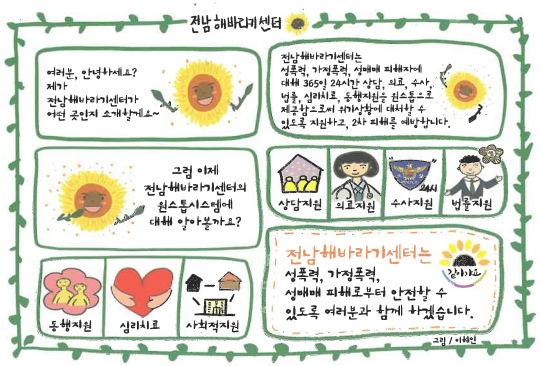 전남해바라기센터
여러분, 안녕하세요?
제가
전남해바라기센터가
어떤 곳인지 소개할게요~
전남해바라기센터는
성폭력, 가정폭력, 성매매 피해자에
대해 365일 24시간 상담, 의료, 수사,
법률, 심리치료, 동행지원을 원스톱으로
제공함으로써 위기상황에 대처할 수
있도록 지원하고, 2차 피해를 예방합니다.
그럼 이제
전남해바라기센터의
원스톱시스템에
대해 알아볼까요?
상담지원
의료지원
24시
수사지원
법률지원
동행지원
심리치료
사회적지원
전남해바라기센터는
성폭력, 가정폭력,
성매매 피해로부터 안전할 수
있도록 여러분과 함께 하겠습니다.
같이가요
그림 / 이혜인